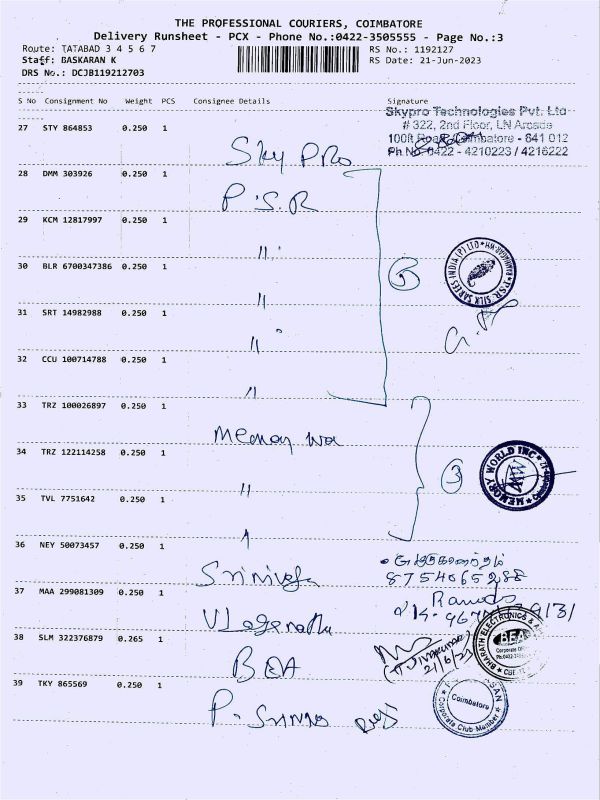 THE PROFESSIONAL COURIERS, COIMBATORE
Delivery Runsheet - PCX - Phone No.:0422-3505555 - Page No.:3
Route: TATABAD 3 4 5 6 7
RS No.: 1192127
Staff: BASKARAN K
RS Date: 21-Jun-2023
DRS No.: DCJB119212703
S No Consignment No Weight PCS Consignee Details Signature
Skypro Technologies Pvt. Ltd
# 322, 2nd Floor, LN Arcade
100ft Road, Coimbatore - 641 012
Ph.No 0422 - 4210223 / 4216222
27 STY 864853 0.250 1
Sky Pro
28 DMM 303926 0.250 1
P.S.R
29 KCM 12817997 0.250 1
"
30 BLR 6700347386 0.250 1
"
P.S.R. SILK SAREES INDIA (P) LTD
5
31 SRT 14982988 0.250 1
"
32 CCU 100714788 0.250 1
"
33 TRZ 100026897 0.250 1
Memory Wor
34 TRZ 122114258 0.250 1
"
3
MEMORY WORLD INC
35 TVL 7751642 0.250 1
"
36 NEY 50073457 0.250 1
Sriniva
8754065288
37 MAA 299081309 0.250 1
38 SLM 322376879 0.265 1
BEA
21/6/23
BHARATH ELECTRONICS &
BEA
39 TKY 865569 0.250 1
P. Srinivas
Coimbatore
Corporate Club Member